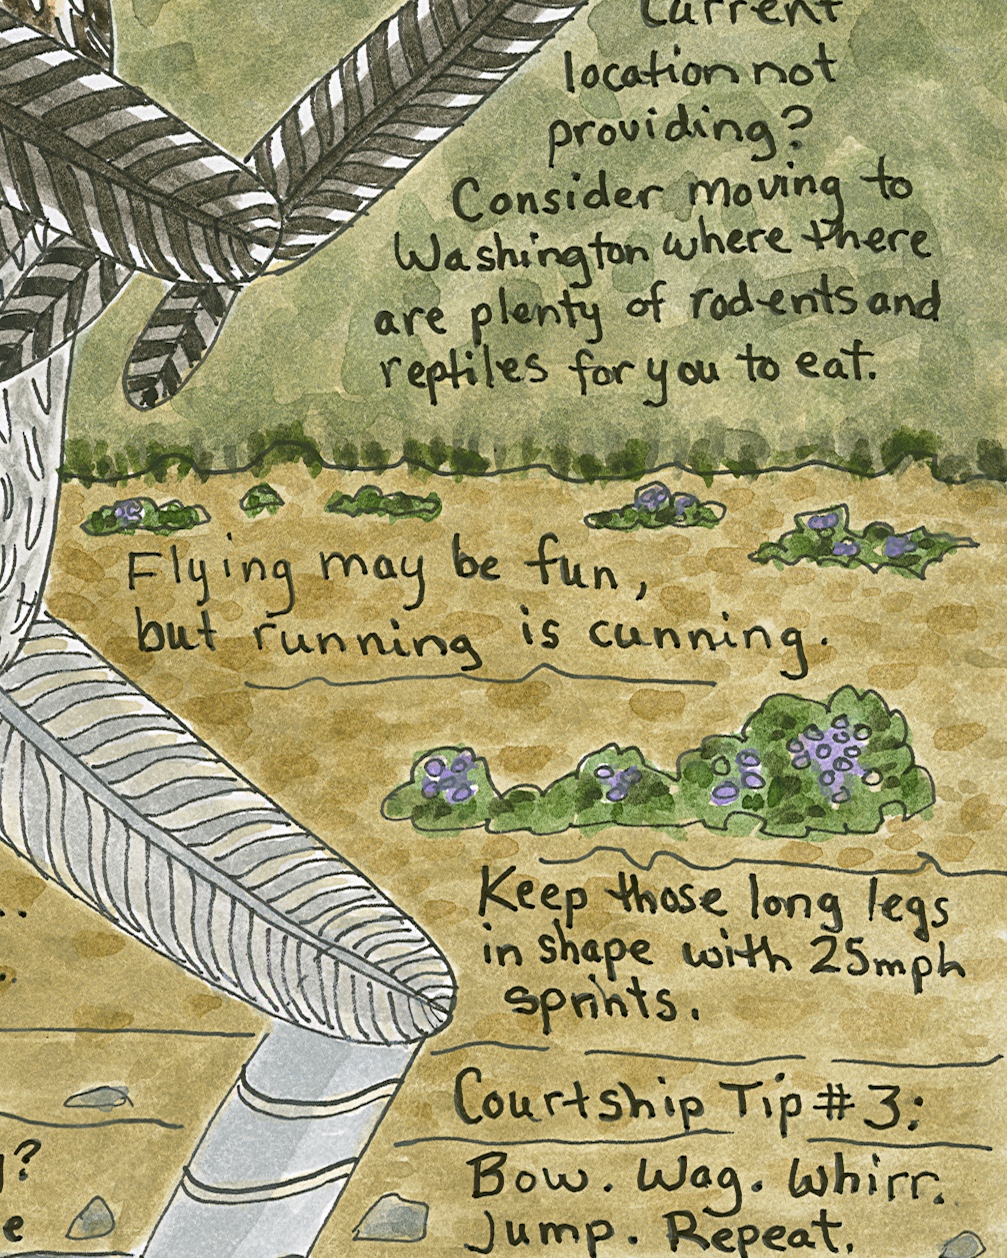 Current
location not
providing?
Consider moving to
Washington where there
are plenty of rodents and
reptiles for you to eat.
Flying may be fun,
but running is cunning.
Keep those long legs
in shape with 25mph
sprints.
Courtship Tip #3:
Bow. Wag. Whirr.
Jump. Repeat.